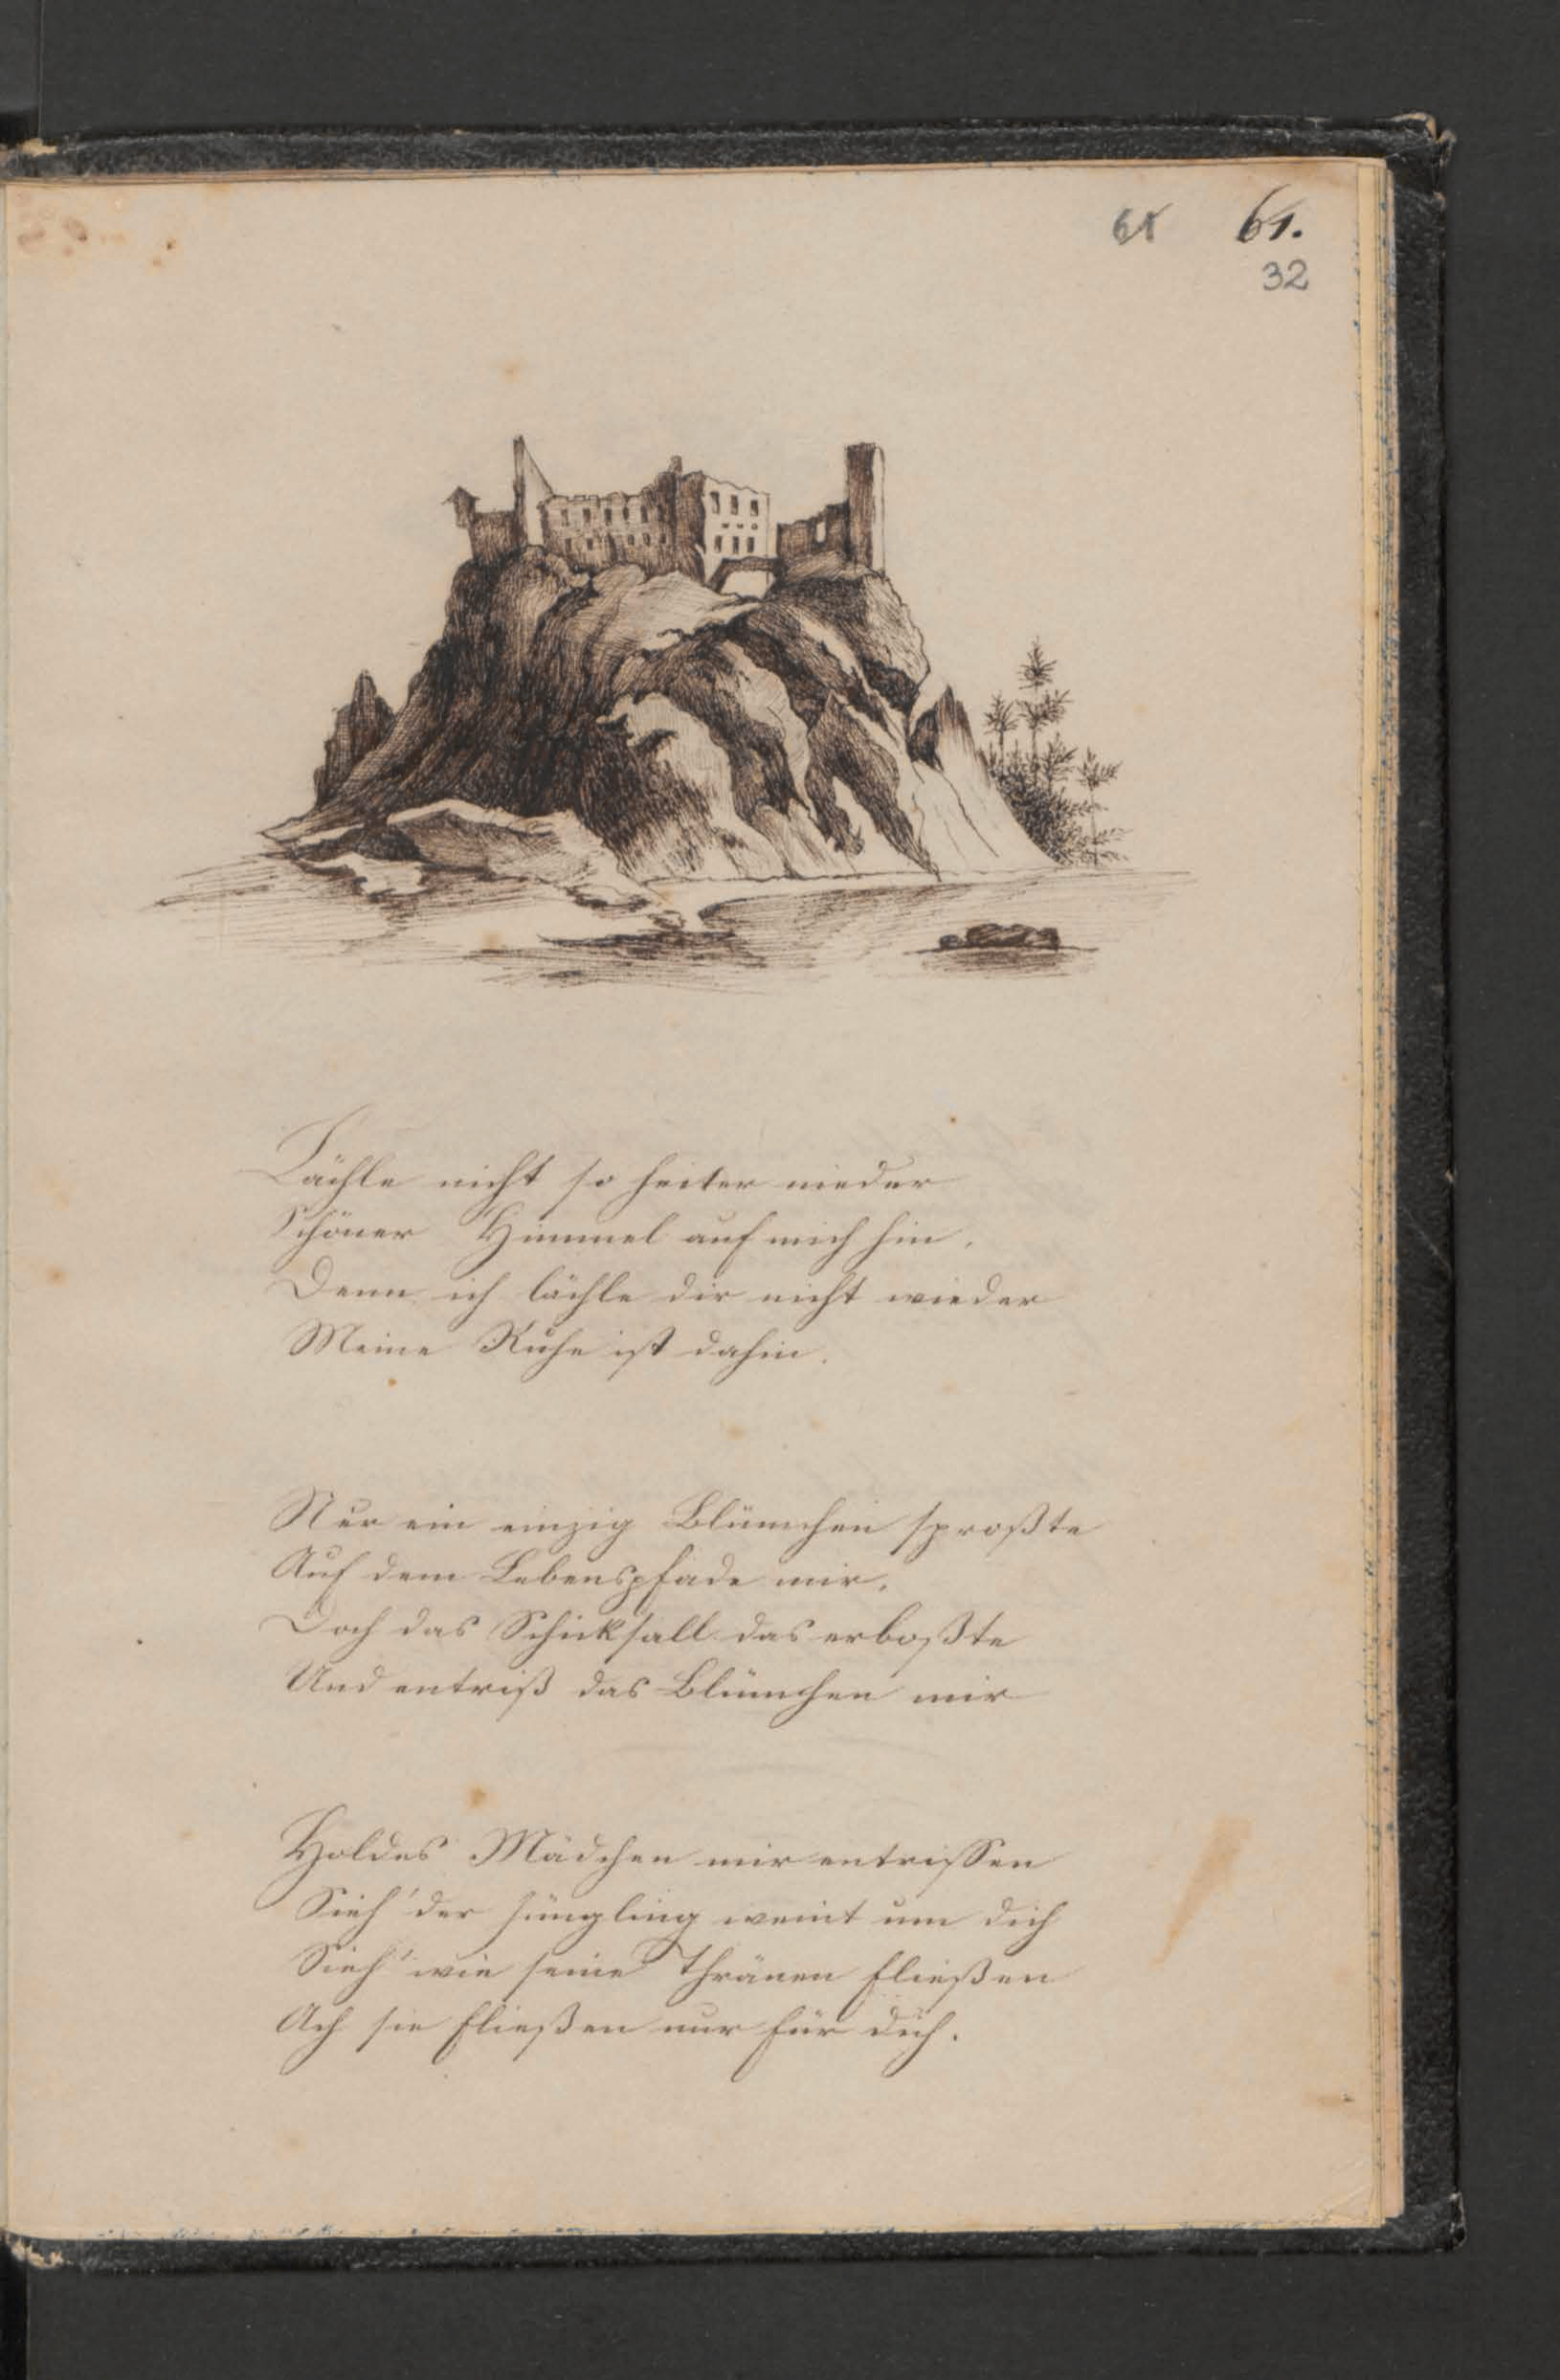 61 61.
32
Lächle nicht so heiter nieder
Schöner Himmel auf mich hin,
Denn ich lächle dir nicht wieder
Meine Ruhe ist dahin.
Nur ein einzig Blümchen sproßte
Auf dem Lebenspfade mir,
Doch das Schicksall das erboßte
Und entriß das Blümchen mir
Holdes Mädchen mir entrissen
Sieh' der Jüngling weint um dich
Sieh' wie seine Thränen fließen
Ach sie fließen nur für dich.